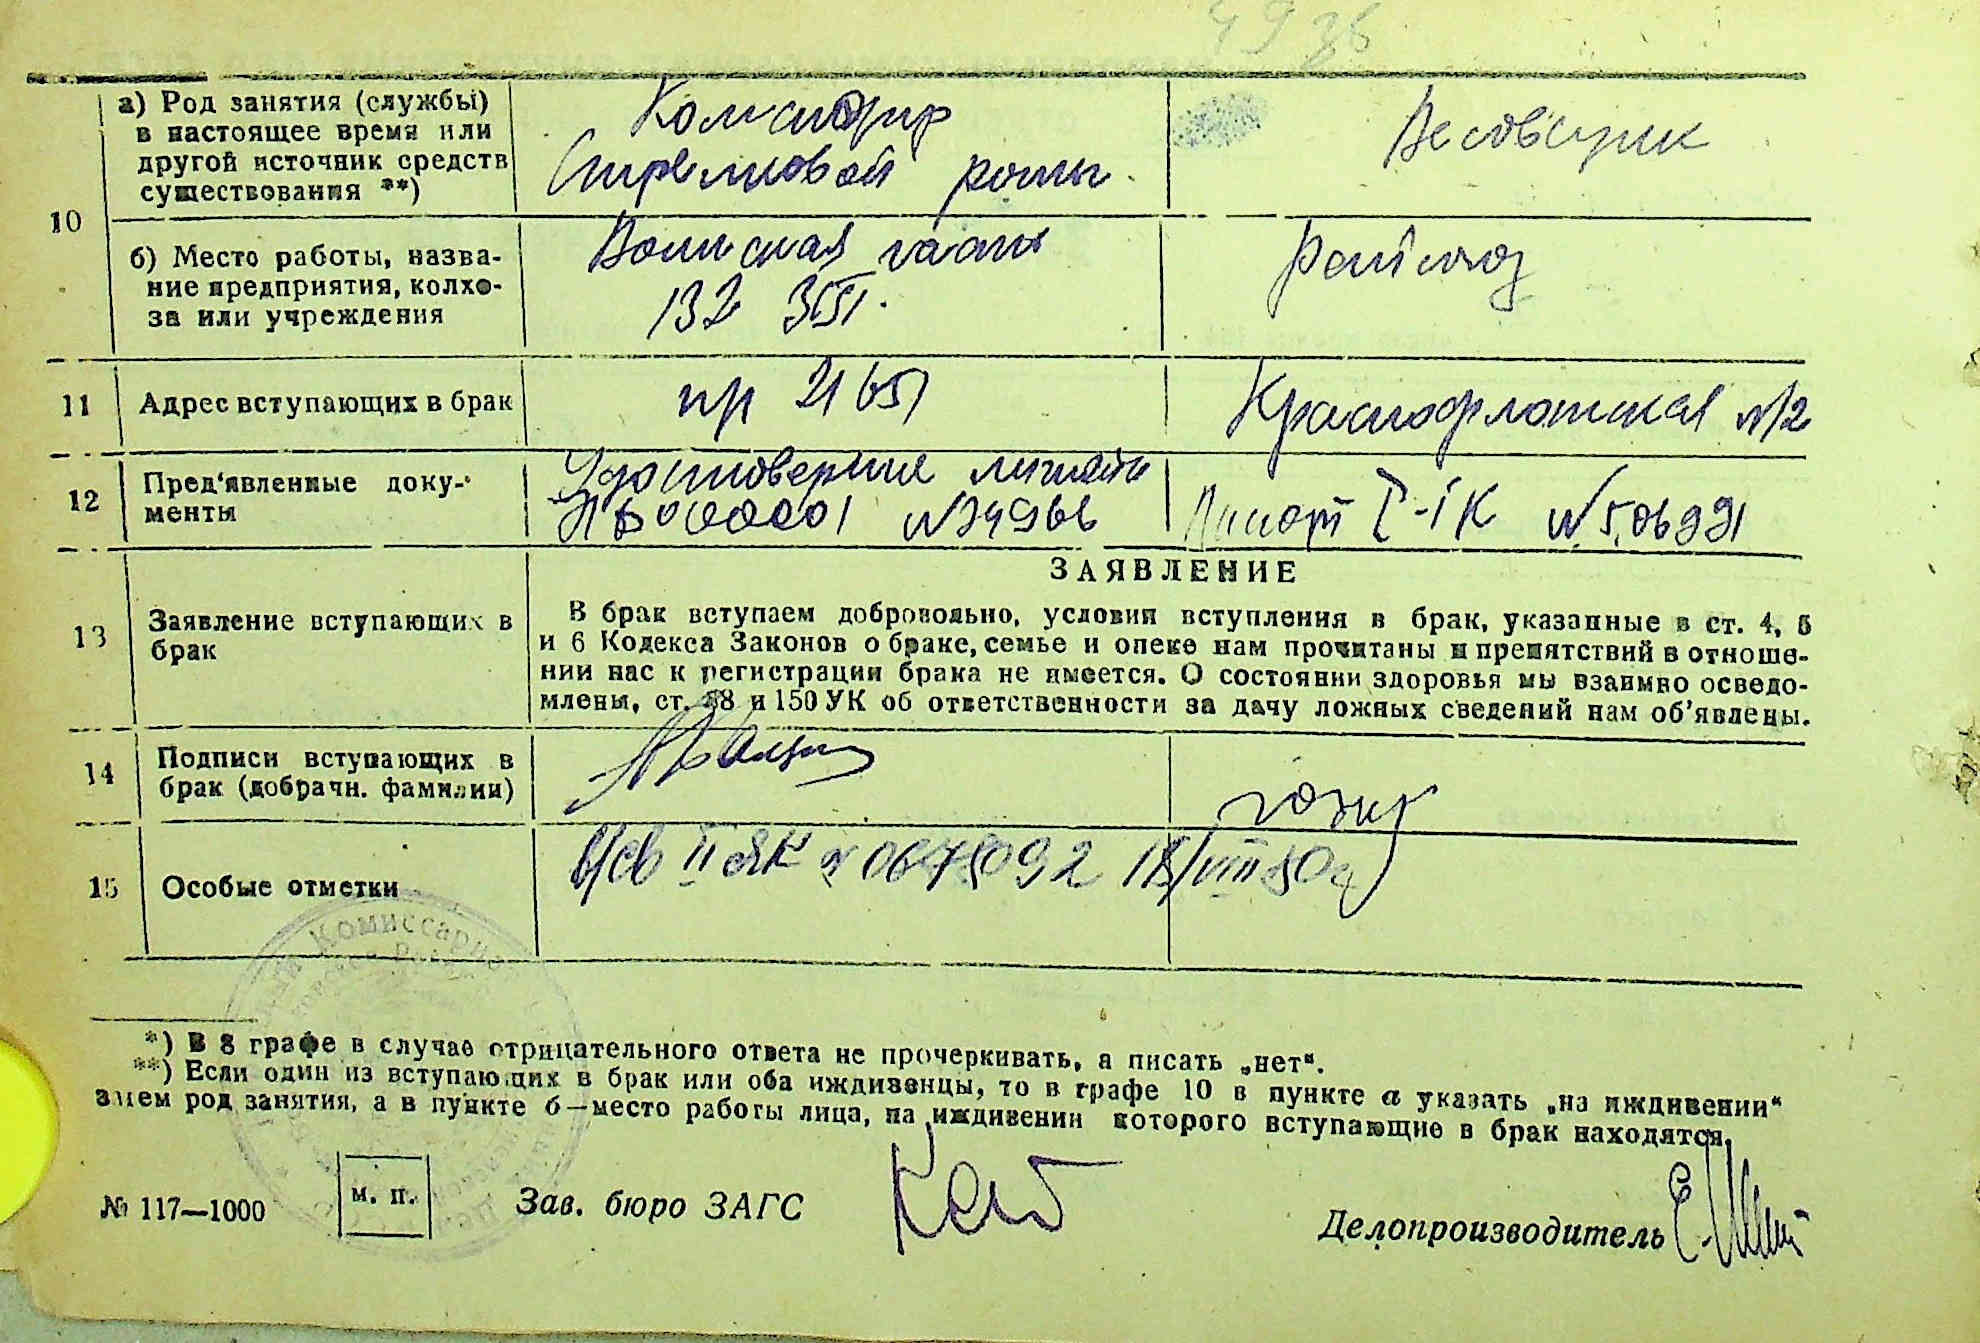 а) Род занятия (службы)
в настоящее время или
другой источник средств
существования **)
Командир
Стрелковой роты
Весовщик
10
б) Место работы, назва-
ние предприятия, колхо-
за или учреждения
Воинская часть
132
11
Адрес вступающих в брак
Краснофлотская №2
12
Пред'явленные доку-
менты
Удостоверение личности
№34966
Паспорт I-IК №506991
ЗАЯВЛЕНИЕ
13
Заявление вступающих в
брак
В брак вступаем добровольно, условия вступления в брак, указанные в ст. 4, 5
и 6 Кодекса Законов о браке, семье и опеке нам прочитаны и препятствий в отноше-
нии нас к регистрации брака не имеется. О состоянии здоровья мы взаимно осведо-
млены, ст. 88 и 150 УК об ответственности за дачу ложных сведений нам об'явлены.
14
Подписи вступающих в
брак (добрачн. фамилии)
15
Особые отметки
*) В 8 графе в случае отрицательного ответа не прочеркивать, а писать „нет“.
**) Если один из вступающих в брак или оба иждивенцы, то в графе 10 в пункте а указать „на иждивении“
зачем род занятия, а в пункте б—место работы лица, на иждивении которого вступающие в брак находятся.
№ 117—1000
м. п.
Зав. бюро ЗАГС
Делопроизводитель